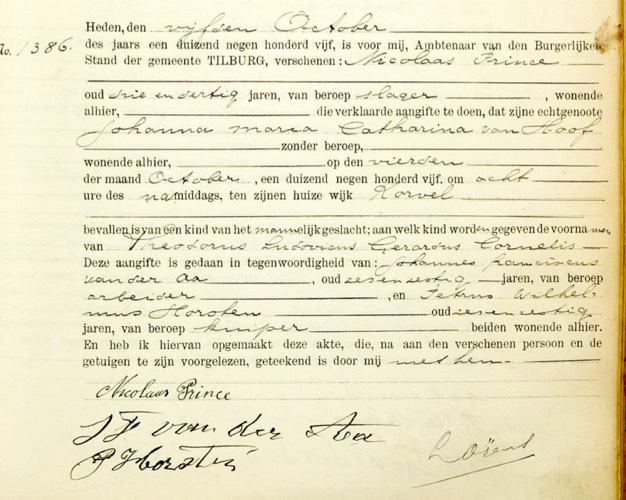 Heden, den vijfden October
No. 1386. des jaars een duizend negen honderd vijf, is voor mij, Ambtenaar van den Burgerlijken
Stand der gemeente TILBURG, verschenen: Nicolaas Prince
oud drie en dertig jaren, van beroep slager, wonende
alhier, die verklaarde aangifte te doen, dat zijne echtgenoote
Johanna Maria Catharina van Hoof
zonder beroep,
wonende alhier, op den vierden
der maand October, een duizend negen honderd vijf, om acht
ure des namiddags, ten zijnen huize wijk Korvel
bevallen is van een kind van het mannelijk geslacht; aan welk kind worden gegeven de voornamen
van Theodorus Ludovicus Gerardus Cornelis
Deze aangifte is gedaan in tegenwoordigheid van: Johannes Franciscus
van der Aa, oud zes en zestig jaren, van beroep
arbeider, en Petrus Wilhel-
mus Horsten oud zes en zestig
jaren, van beroep kuiper beiden wonende alhier.
En heb ik hiervan opgemaakt deze akte, die, na aan den verschenen persoon en de
getuigen te zijn voorgelezen, geteekend is door mij met hen.
Nicolaas Prince
J F van der Aa
P Horsten